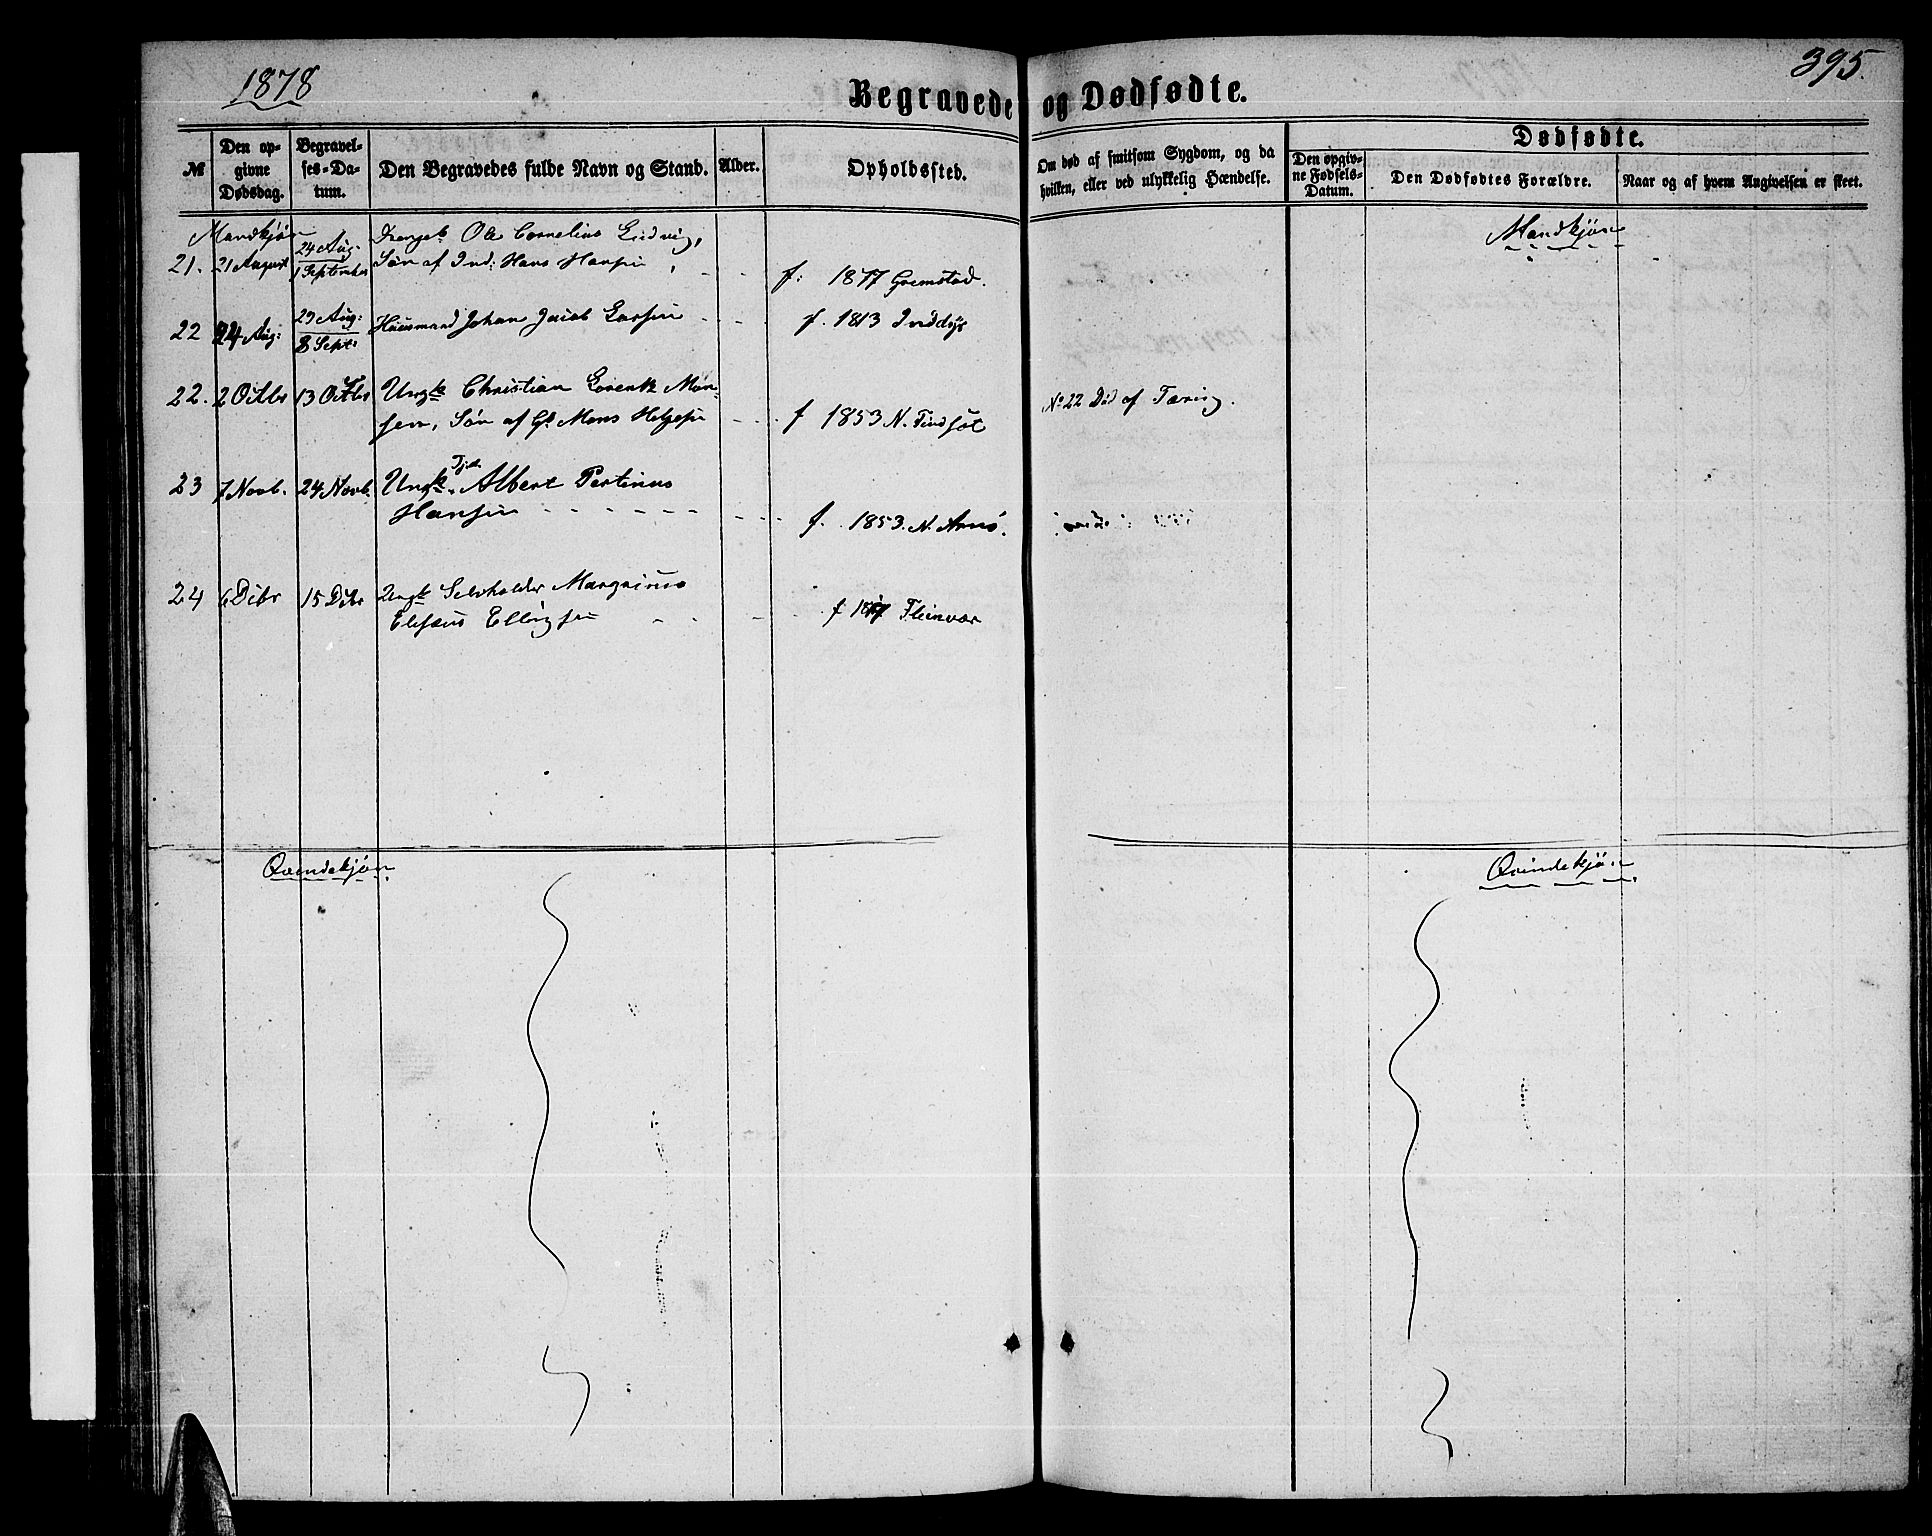 1878
Begravede og Dødfødte.
395.
№
Den op-
givne
Dødsdag.
Begravel-
ses-Da-
tum.
Den Begravedes fulde Navn og Stand.
Alder.
Opholdssted.
Om død af smitsom Sygdom, og da
hvilken, eller ved ulykkelig Hændelse.
Dødfødte.
Den opgiv-
ne Fødsels-
Datum.
Den Dødfødtes Forældre.
Naar og af hvem Angivelsen er skeet.
Mandkjøn
Mandkjøn
21. 21 August 24 Aug: Drengeb. Ole Cornelius Ludvig,
1 September Søn af Ind: Hans Hansen f: 1877 Gremstad.
22 24 Aug: 29 Aug: Huusmand Johan Jacob Larsen f. 1813 Inddyr
8 Sept:
22. 2 Octbr 13 Octbr Ungk Christian Lorentz Mon-
sen, Søn af Gb Mons Helgesen f 1853 N. No 22 Død af Tæring.
23 7 Novb. 24 Novb. Ungk. Tjd. Albert Pertinus
Hansen f. 1853. N. Arnø.
24 6 Dcbr 15 Dcbr Ungk Selvholder Margrinus
Elisæus Ellingsen f Fleinvær
Qvindekjøn
Qvindekjøn